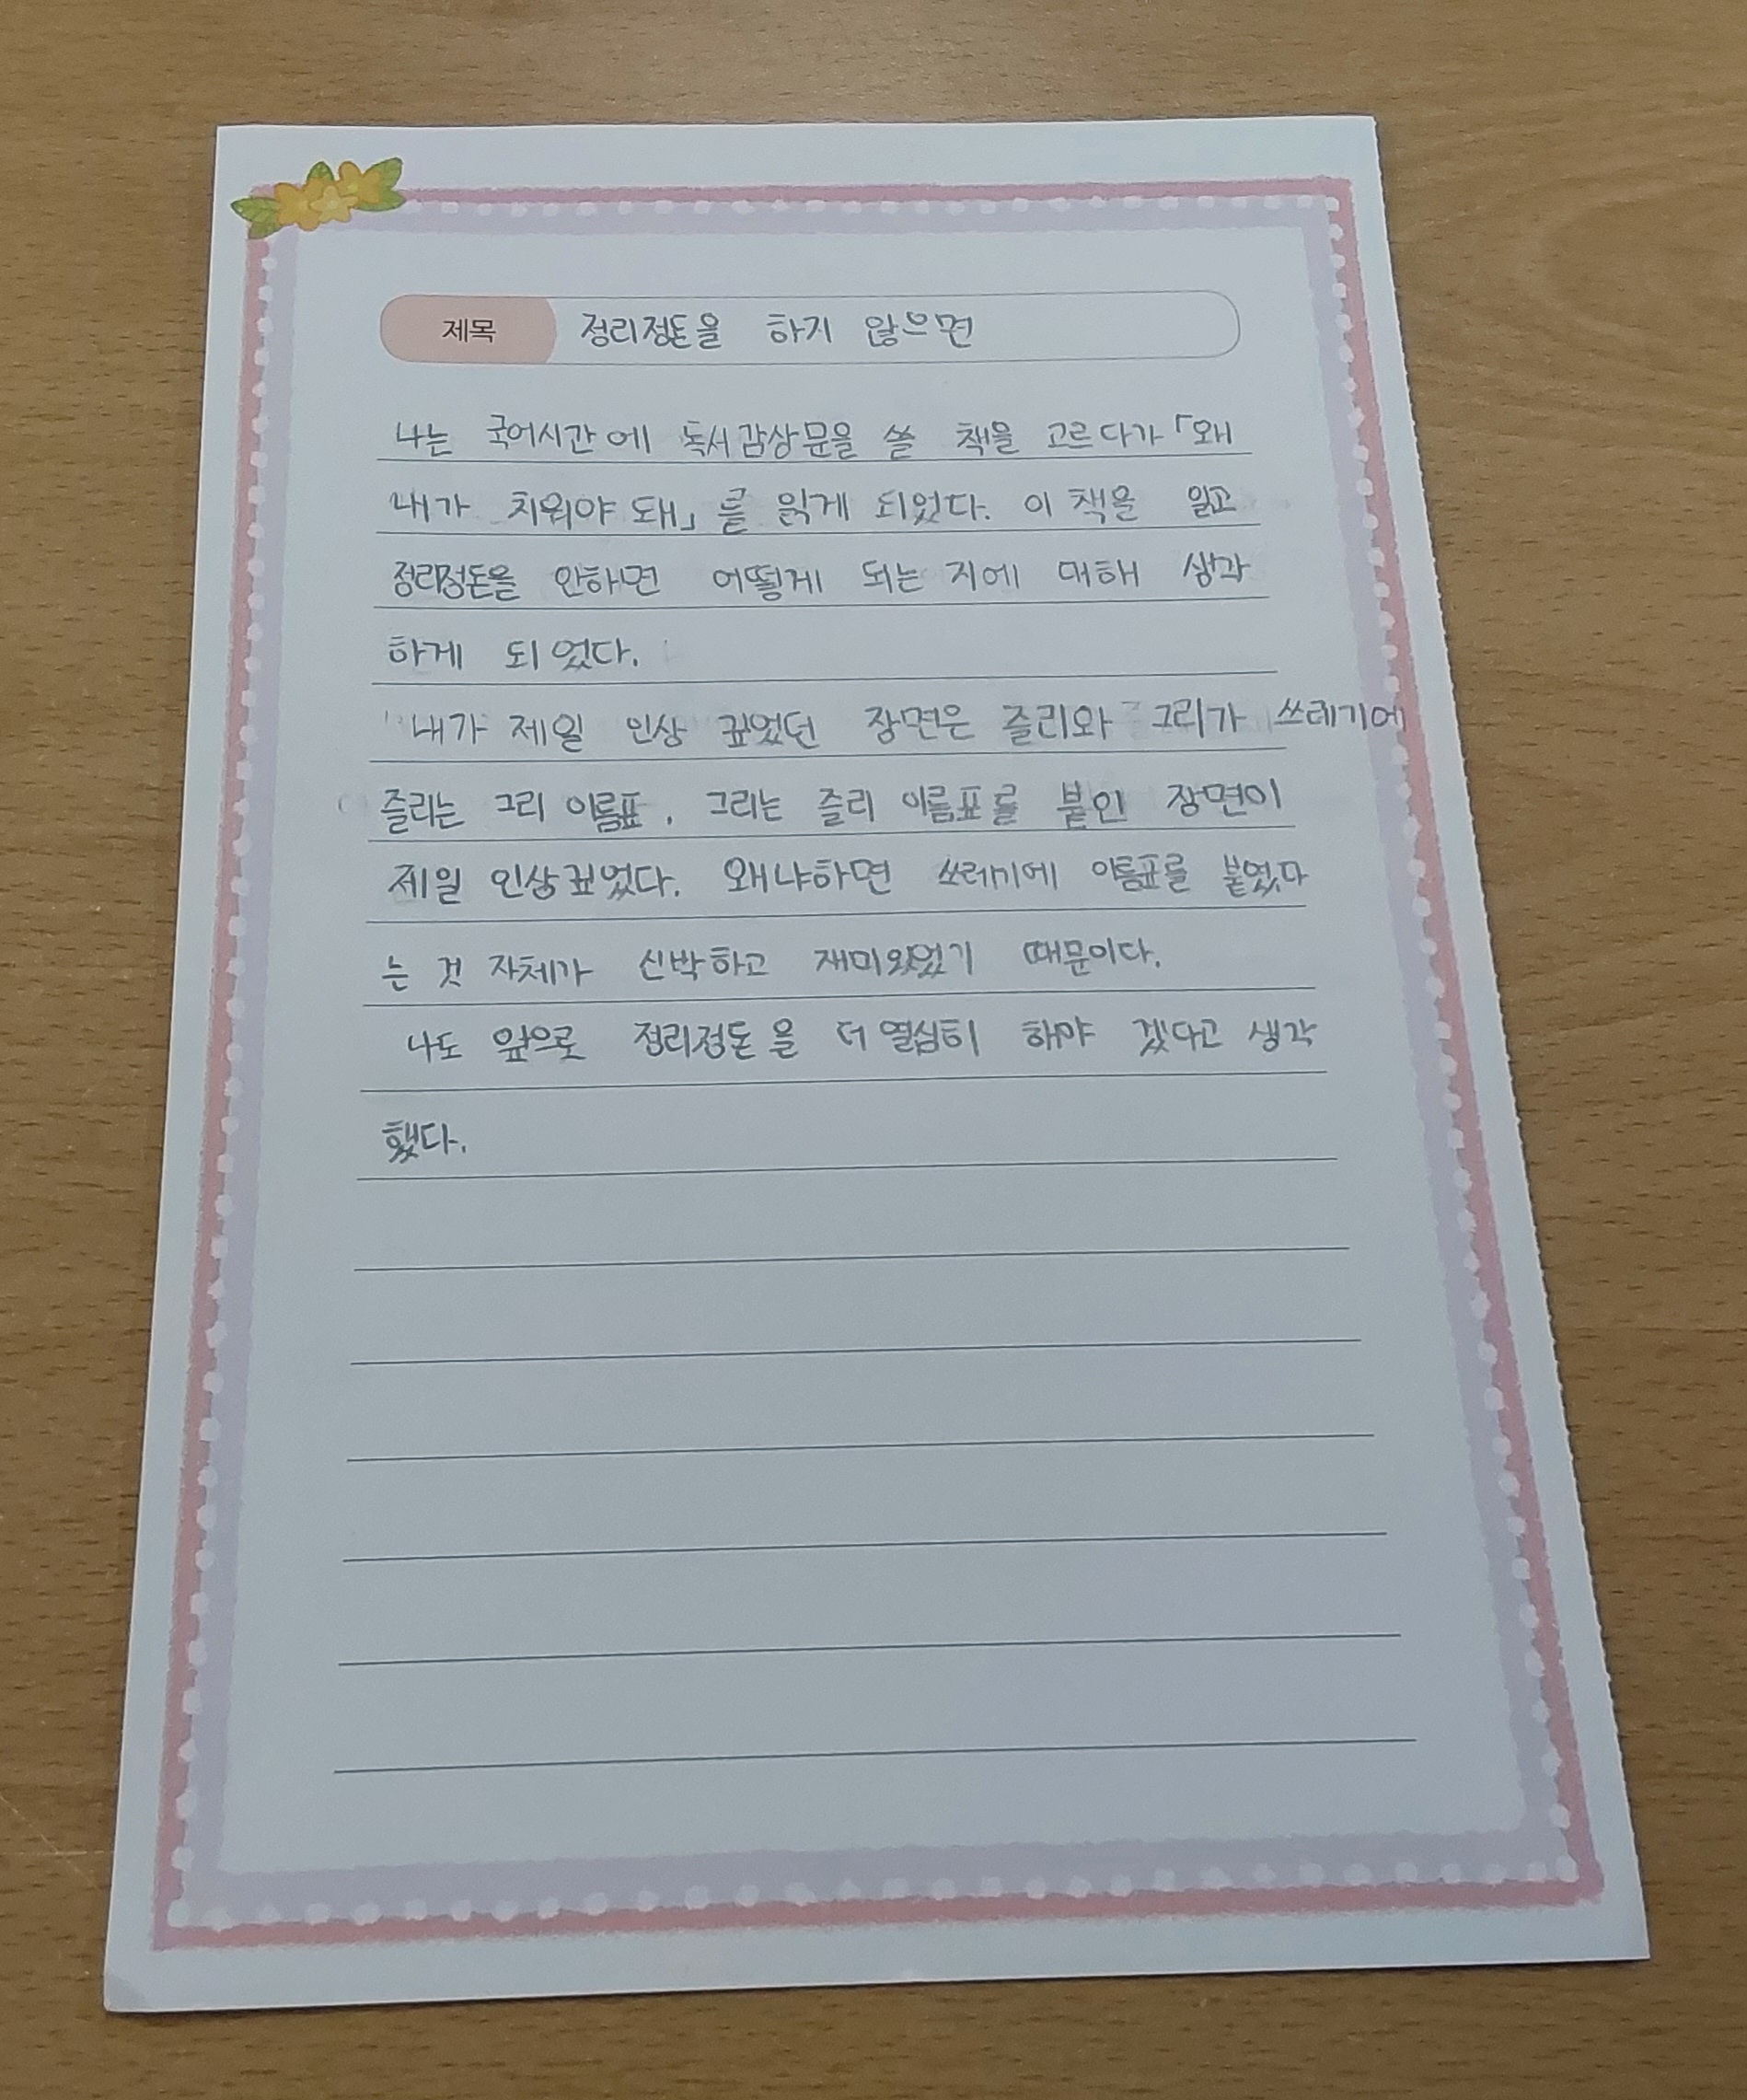 제목 정리정돈을 하지 않으면
나는 국어시간에 독서감상문을 쓸 책을 고르다가 「왜
내가 치워야 돼」를 읽게 되었다. 이 책을 읽고
정리정돈을 안하면 어떻게 되는 지에 대해 생각
하게 되었다.
내가 제일 인상 깊었던 장면은 줄리와 그리가 쓰레기에
줄리는 그리 이름표, 그리는 줄리 이름표를 붙인 장면이
제일 인상깊었다. 왜냐하면 쓰레기에 이름표를 붙였다
는 것 자체가 신박하고 재미있었기 때문이다.
나도 앞으로 정리정돈을 더 열심히 해야 겠다고 생각
했다.